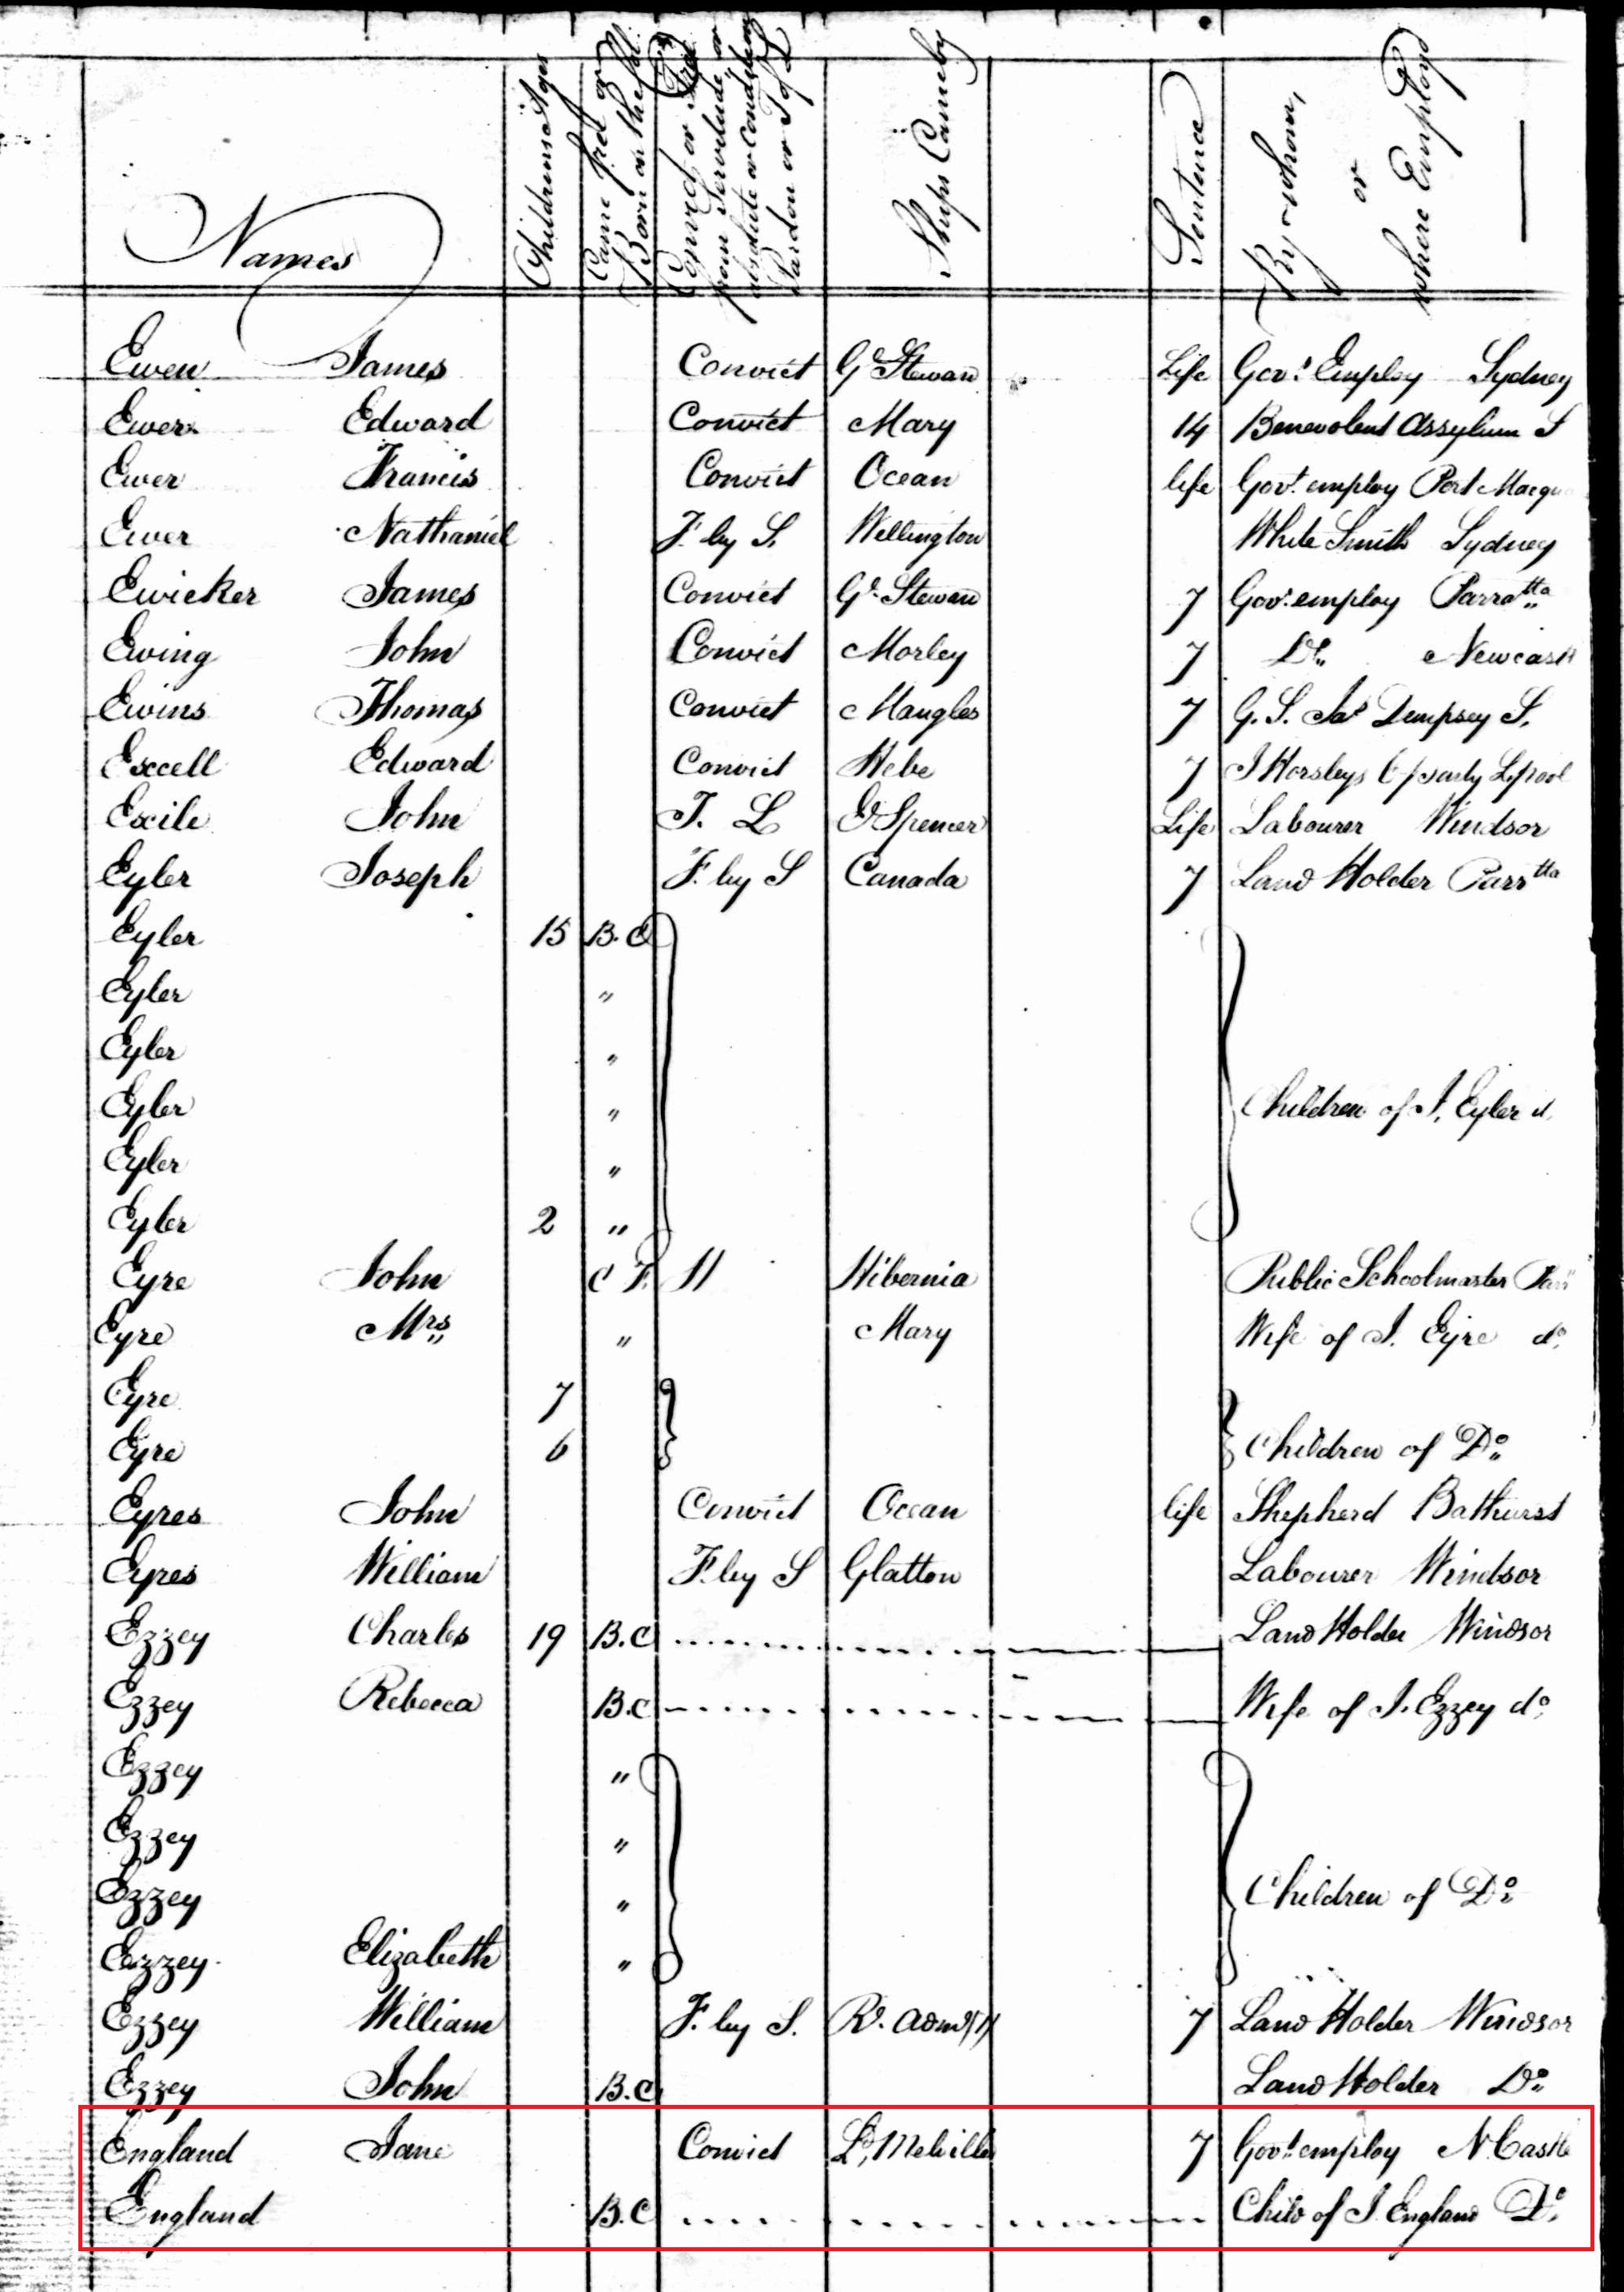 Names
Childrens Ages
Came free or Born in the Col.
Convict or Free from Servitude or absolute or Conditional Pardon or T of L
Ships Came by
Sentence
By whom, or where Employd
Ewen James Convict Gl Stewart Life Govt. Employ Sydney
Ewer Edward Convict Mary 14 Benevolent Assylum S
Ewer Francis Convict Ocean life Govt. employ Port Macqu
Ewer Nathaniel F. by S. Wellington White Smith Sydney
Ewicker James Convict Gl. Stewart 7 Govt. employ Parratta
Ewing John Convict Morley 7 Do. Newcast
Ewins Thomas Convict Mangles 7 G. S. Jas Dempsey S.
Excell Edward Convict Hebe 7 J Horsleys Lpool
Exile John T. L El Spencer Life Labourer Windsor
Eyler Joseph F. by S Canada 7 Land Holder Parrtta
Eyler 15 B. C
Eyler "
Eyler "
Eyler " Children of J. Eyler d
Eyler "
Eyler 2 "
Eyre John C F. Hibernia Public Schoolmaster Parr
Eyre Mrs " Mary Wife of J. Eyre do.
Eyre 7
Eyre 6 Children of Do.
Eyres John Convict Ocean life Shepherd Bathurst
Eyres William F. by S Glatton Labourer Windsor
Ezzey Charles 19 B.C Land Holder Windsor
Ezzey Rebecca B.C Wife of J. Ezzey do.
Ezzey "
Ezzey "
Ezzey " Children of Do.
Ezzey Elizabeth "
Ezzey William F. by S. Rl. Adml 7 Land Holder Windsor
Ezzey John B.C Land Holder Do.
England Jane Convict Ld. Melville 7 Govt. employ N Castle
England B.C Child of J. England Do.